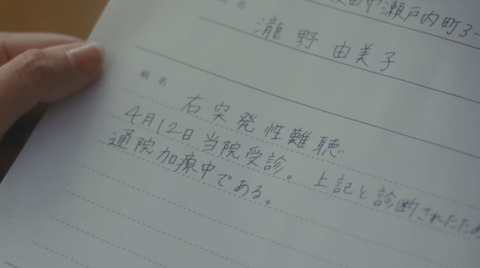 中瀬戸内町3-
氏名
瀧野由美子
病名
右突発性難聴
4月12日当院受診。上記と診断されたため
通院加療中である。